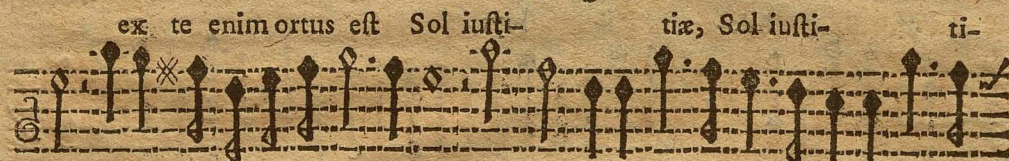 ex te enim ortus eſt Sol iuſti- tiæ, Sol iuſti- ti-